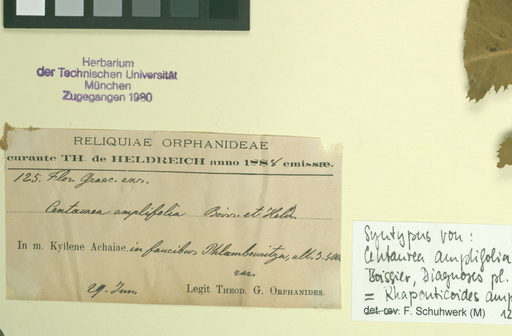 Herbarium
der Technischen Universität
München
Zugegangen 1980
RELIQUIAE ORPHANIDEAE
curante TH. de HELDREICH anno 1886 emissæ.
125. Flor. Graec. exs.
Centaurea amplifolia Boiss. et Heldr.
In m. Kyllene Achaiae, in faucibus Phlambouritza, alt.
rar.
29. Jun. Legit THEOD. G. ORPHANIDES.
Syntypus von:
Centaurea amplifolia
Boissier, Diagnoses pl.
= Rhaponticoides amp
det. rev. F. Schuhwerk (M) 12